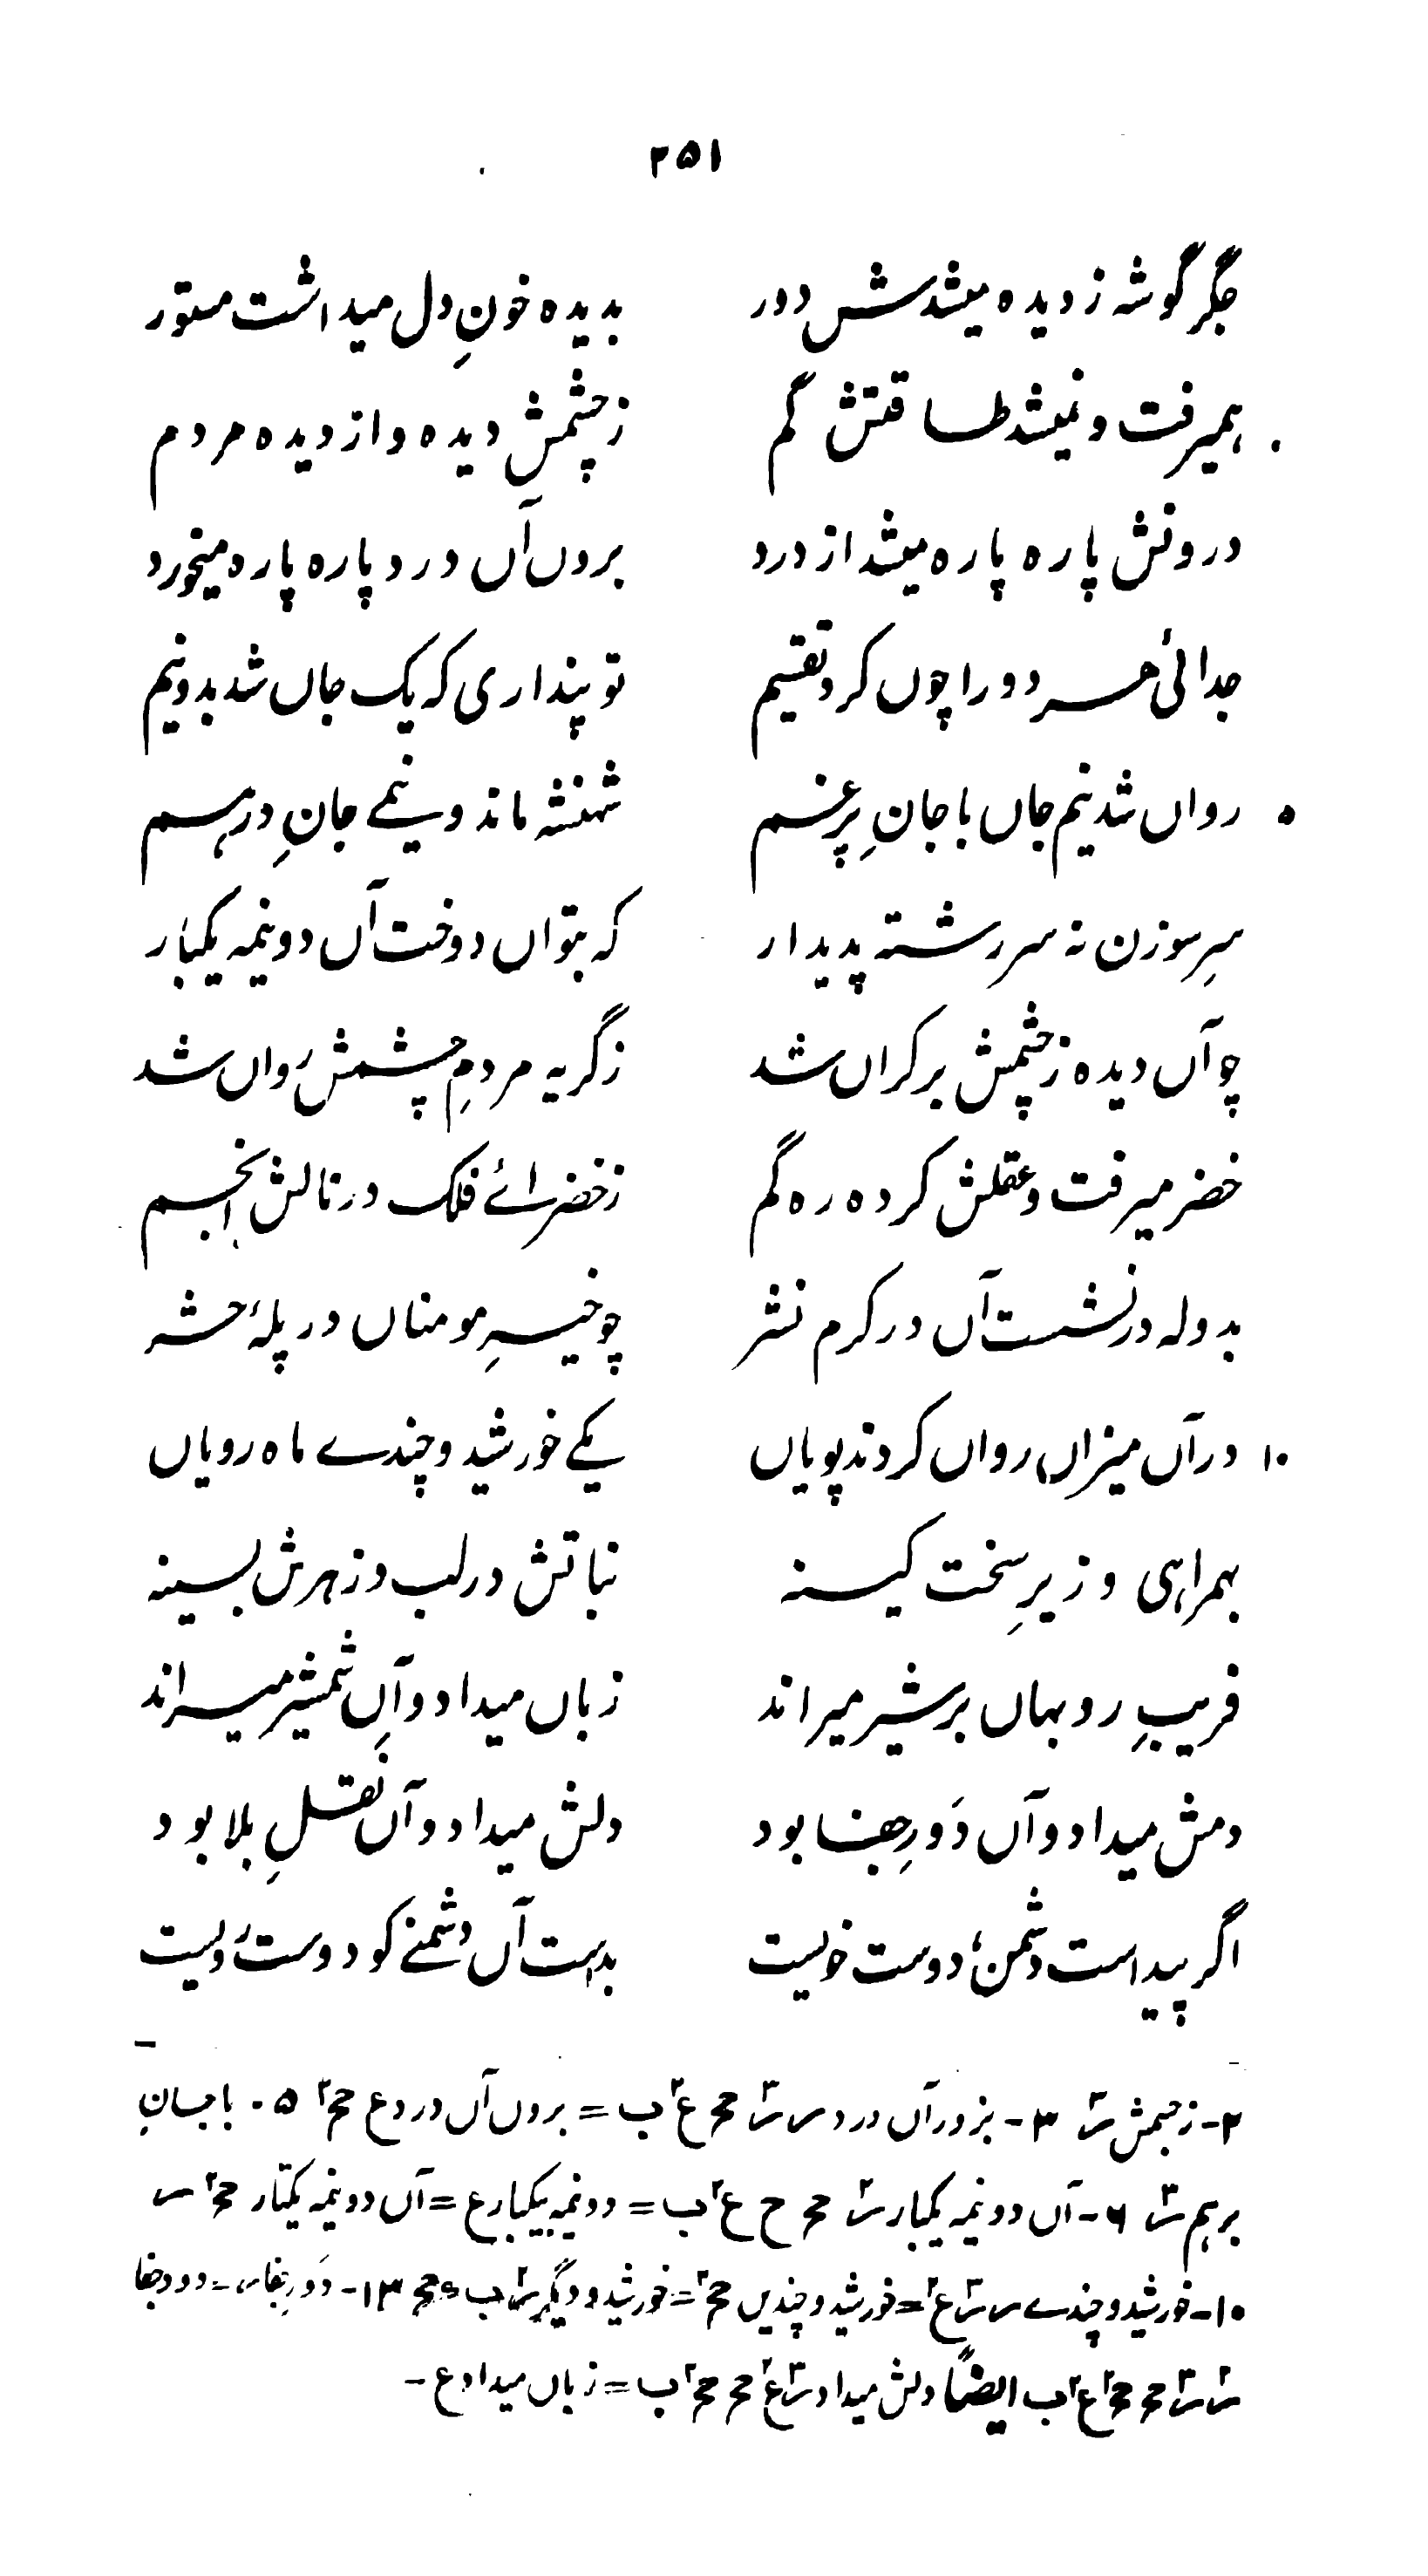 ۲۵۱
جگر گوشه ز دیده میشدش دور بدیده خونِ دل میداشت مستور
همیرفت و نمیشد طاقتش گم ز چشمش دیده و از دیده مردم
درونش پاره پاره میشد از درد بروں آں درد پاره پاره میخورد
جدائی هر دو را چوں کرد تقسیم تو پنداری که یک جاں شد بدو نیم
۵ رواں شد نیم جاں با جانِ پر غم شهنشه ماند و نیمے جانِ درهم
سرِ سوزن نه سر رشته پدیدار که بتواں دوخت آں دو نیمه یکبار
چو آں دیده ز چشمش بر کراں شد ز گریه مردمِ چشمش رواں شد
خضر میرفت و عقلش کرده ره گم ز خضرائے فلک در نالش انجم
بدوله در نشست آں در کرم نشر چو خیرِ مومناں در پلهٔ حشر
۱۰ در آں میزاں رواں کردند پویاں یکے خورشید و چندے ماه رویاں
بهمراهی وزیرِ سخت کینه نباتش در لب و زهرش بسینه
فریبِ روبهاں بر شیر میراند زباں میداد و آں شمشیر میراند
دمش میداد و آں دَورِ جفا بود دلش میداد و آں نقلِ بلا بود
اگر پیداست دشمن، دوست خویست بد است آں دشمنے کو دوست رویست
۲- ز جمیش ۳- بزور آں درد = بروں آں درد ع ۵- با جانِ
برهم ۶- آں دو نیمه یکبار = دو نیمه بیکبار ع = آں دو نیمه یکتار
۱۰- خورشید و چندے = خورشید و چندیں = خورشید و دیگر ۱۳- دَورِ بقا - دود جفا
ایضاً دلش میداد = زباں میداد ع -